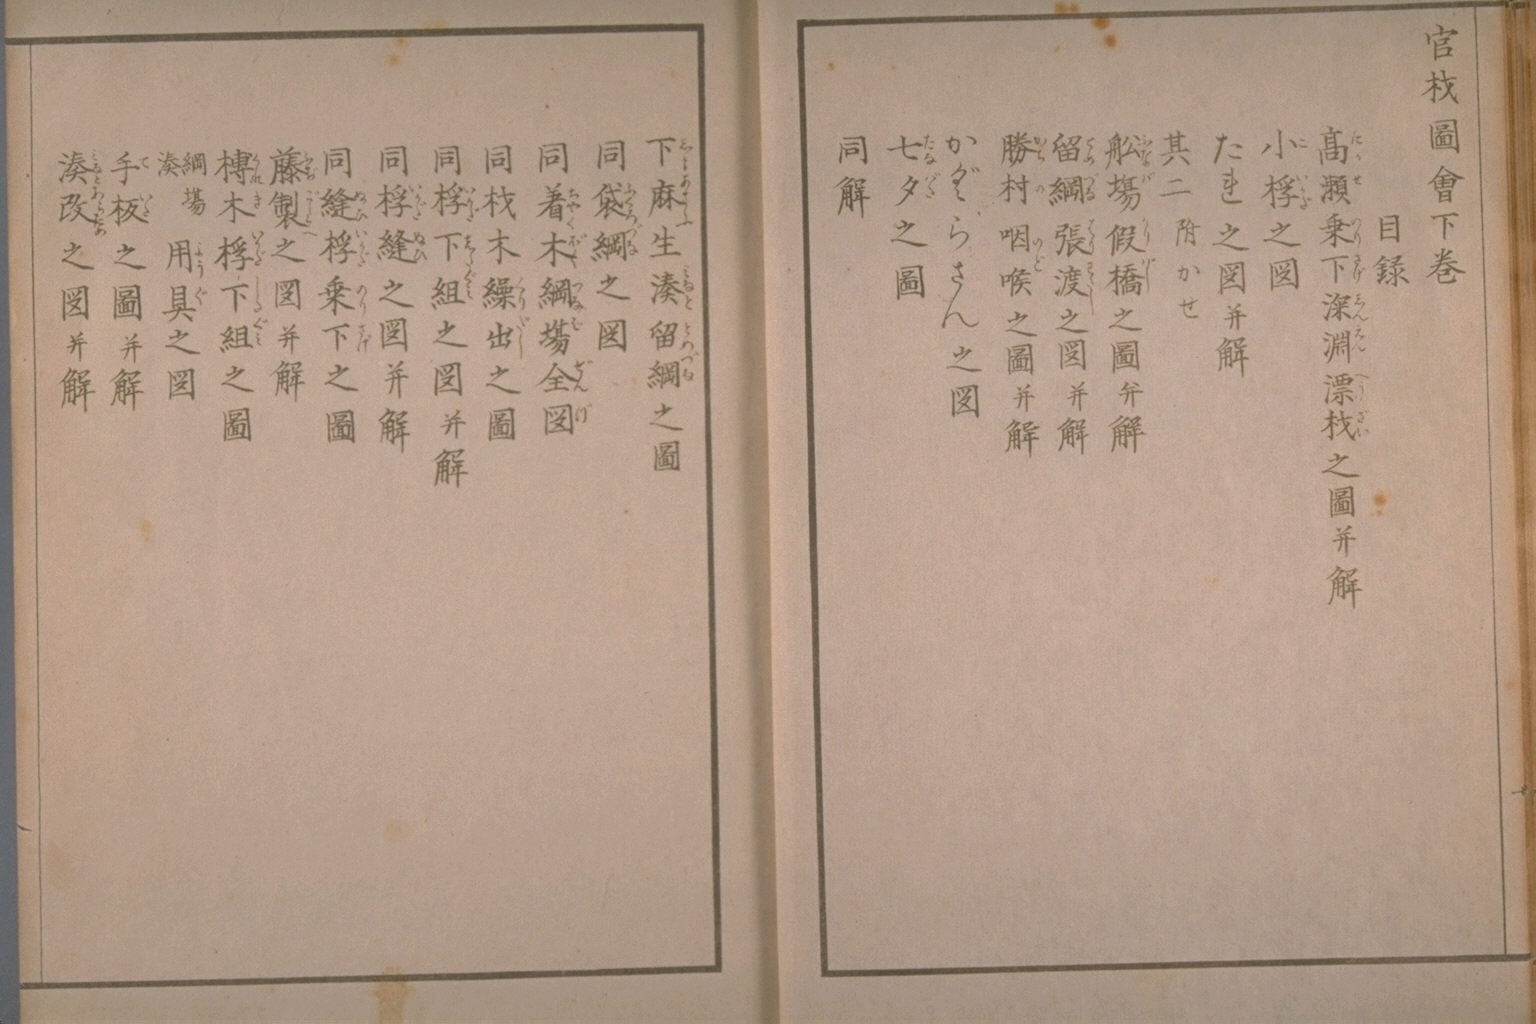 官材圖會下巻
目録
高瀬乗下深淵漂材之圖并解
小桴之図
たれ之図并解
其二 附かせ
舩塲假橋之圖并解
留綱張渡之図并解
勝村咽喉之圖并解
かぐらさん之図
七夕之圖
同解
下麻生湊留綱之圖
同袋綱之図
同着木綱塲全図
同材木繰出之圖
同桴下組之図并解
同桴縫之図并解
同縫桴乗下之圖
藤製之図并解
榑木桴下組之圖
綱塲湊用具之図
手板之圖并解
湊改之図并解